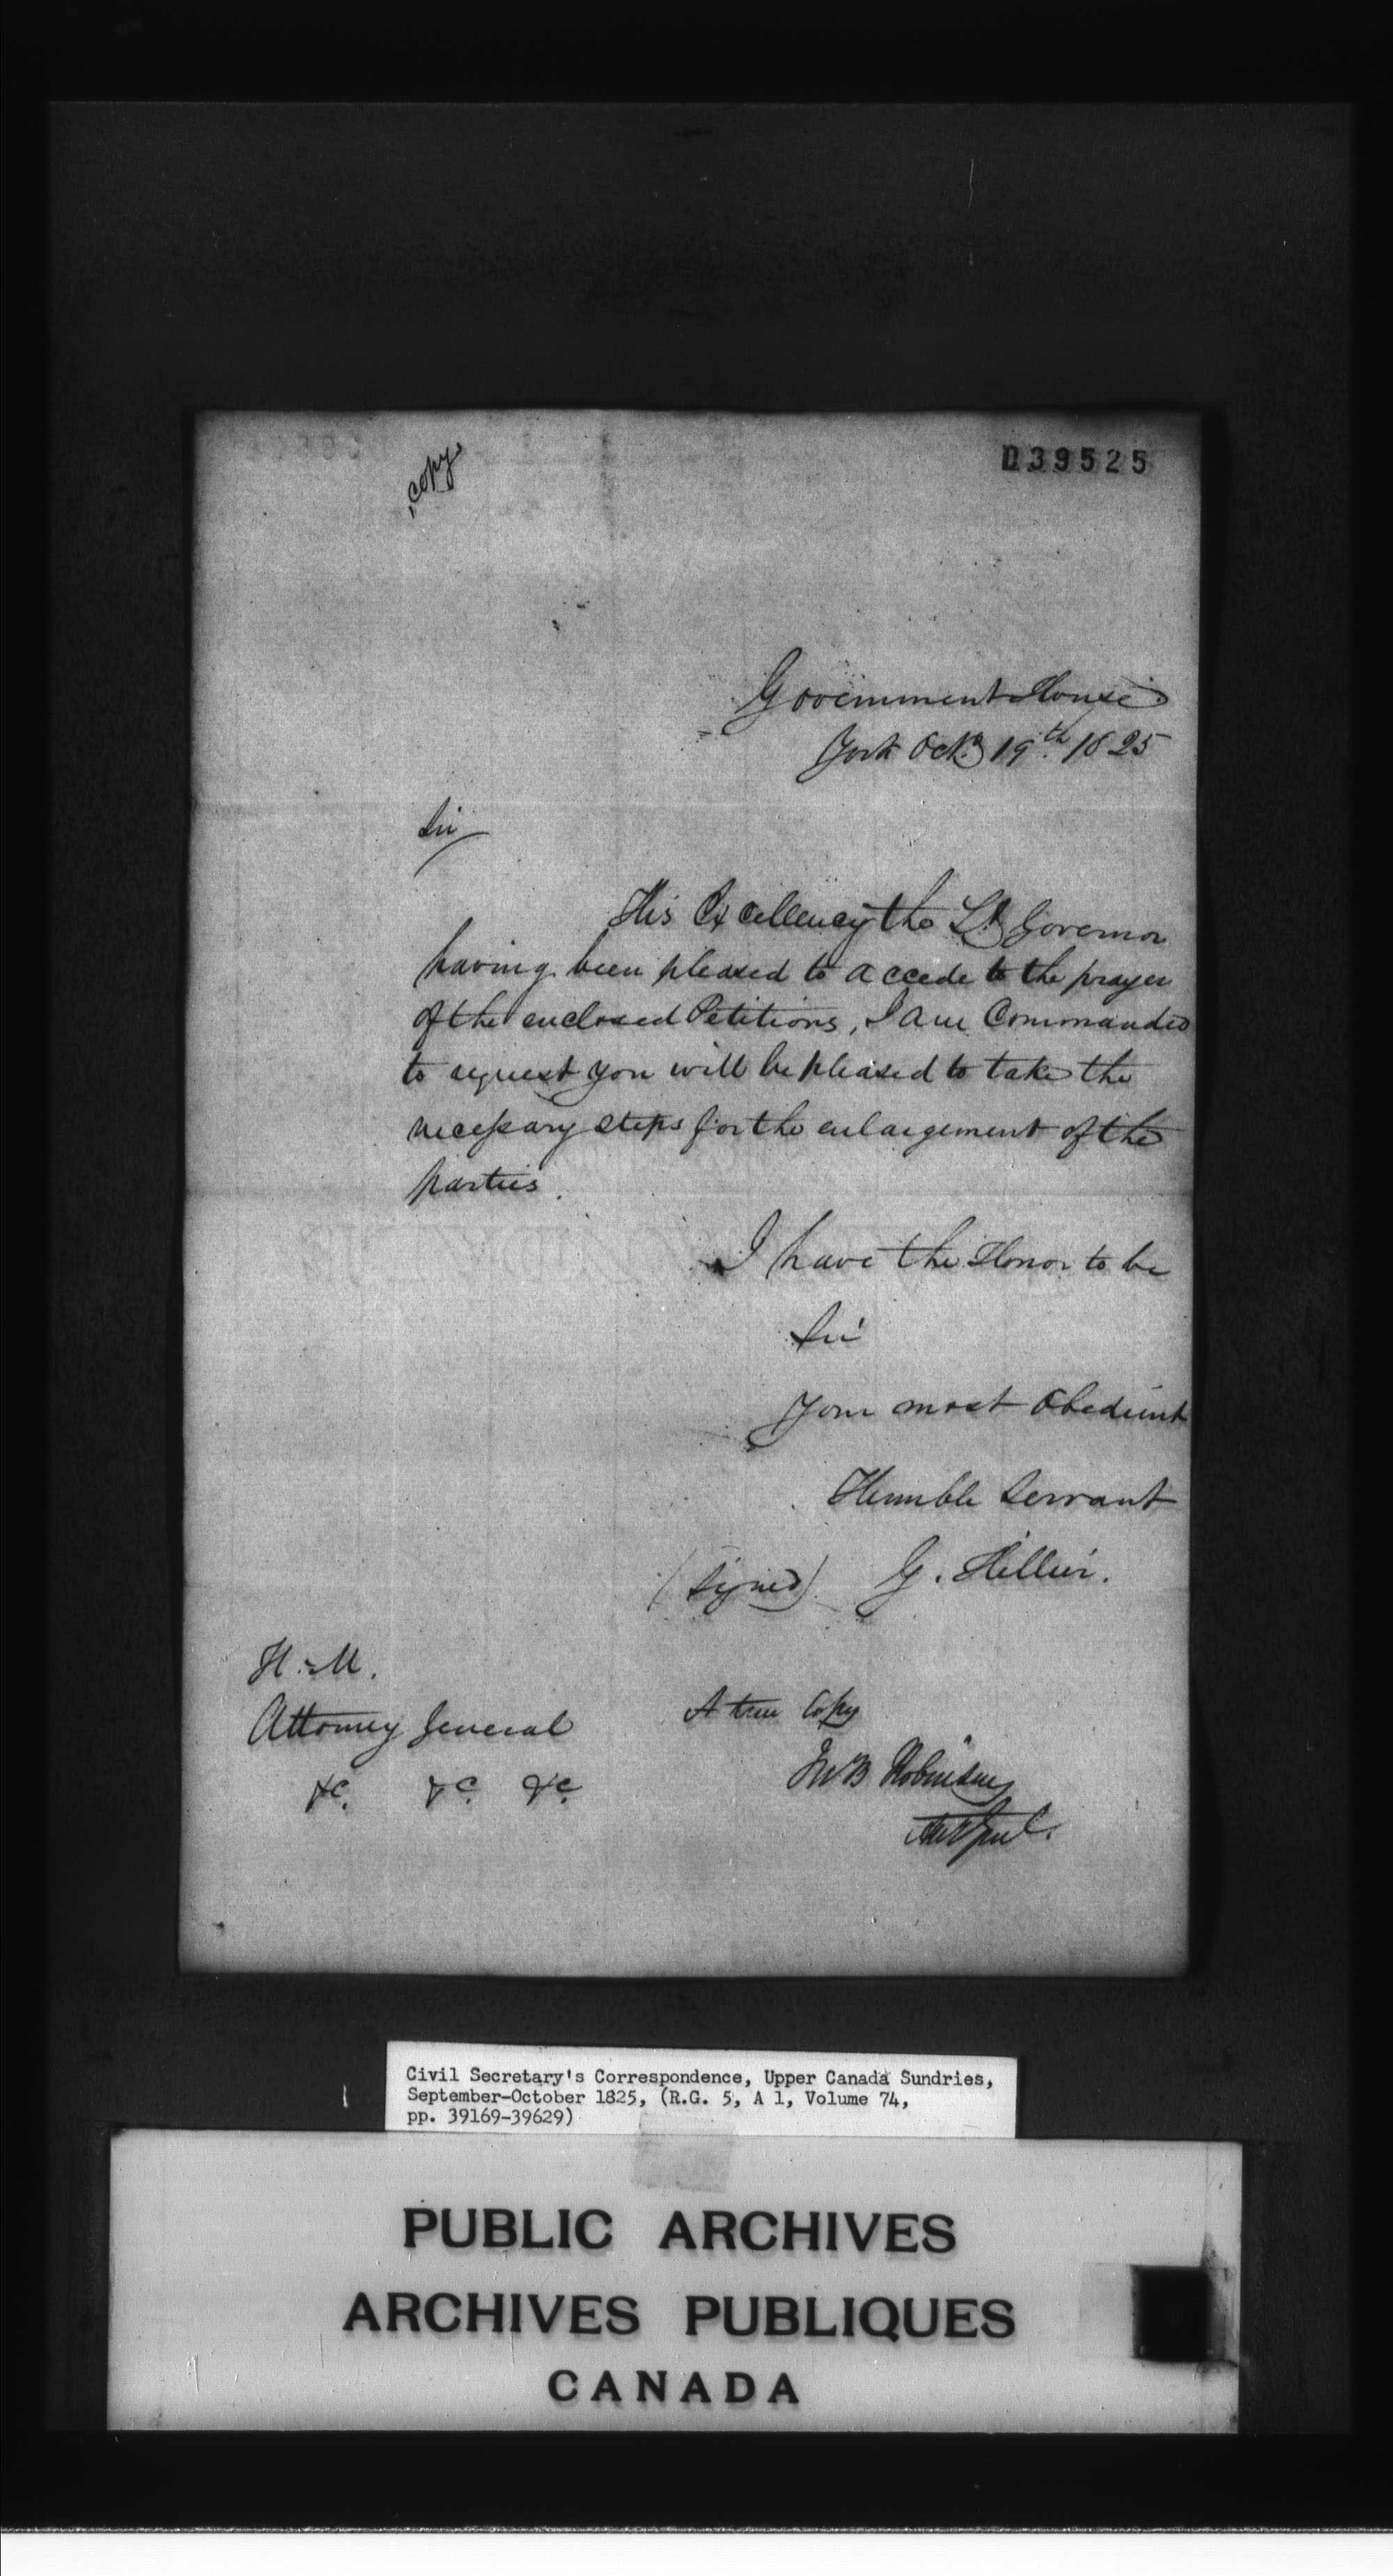 copy
039525
Government House
York Octr. 19th. 1825
Sir
His Excellency the Lt. Governor
having been pleased to accede to the prayer
of the enclosed Petitions, I am Commanded
to request you will be pleased to take the
necessary steps for the enlargement of the
parties.
I have the Honor to be
Sir
Your most Obedient
Humble Servant
(signed) G. Hillier.
H. M.
Attorney General
&c. &c. &c.
A true Copy
Jno B Robinson
Att Genl.
Civil Secretary's Correspondence, Upper Canada Sundries,
September-October 1825, (R.G. 5, A 1, Volume 74,
pp. 39169-39629)
PUBLIC ARCHIVES
ARCHIVES PUBLIQUES
CANADA